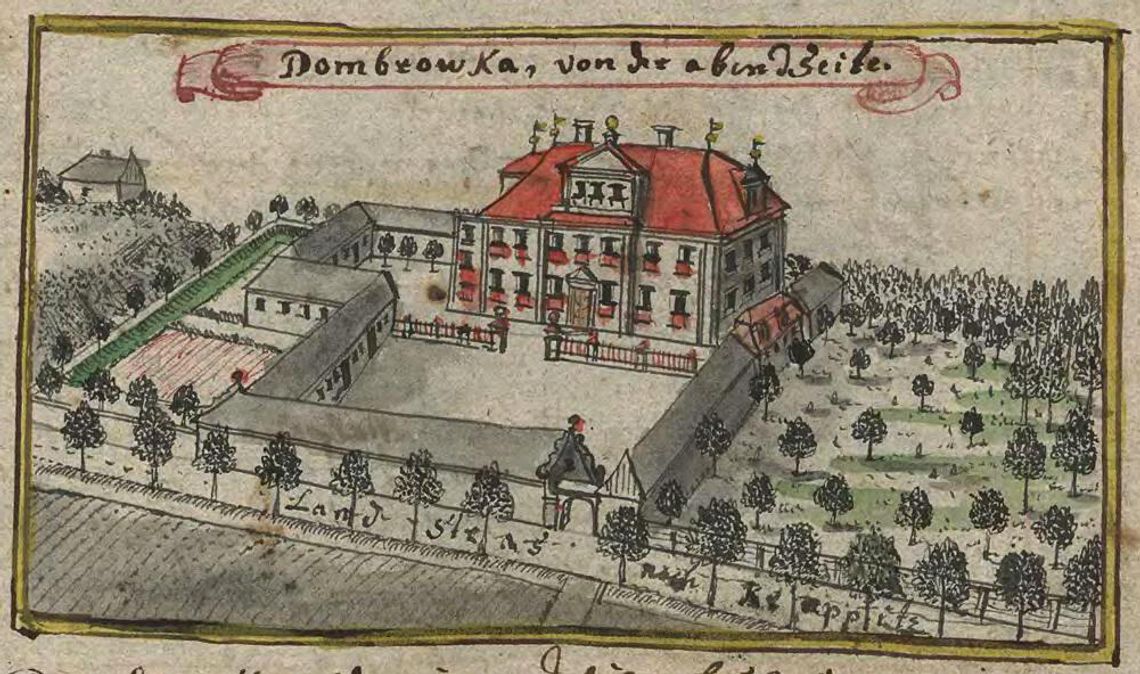 Dombrowka, von der abendSeite.
Land Stras
nach Krappitz